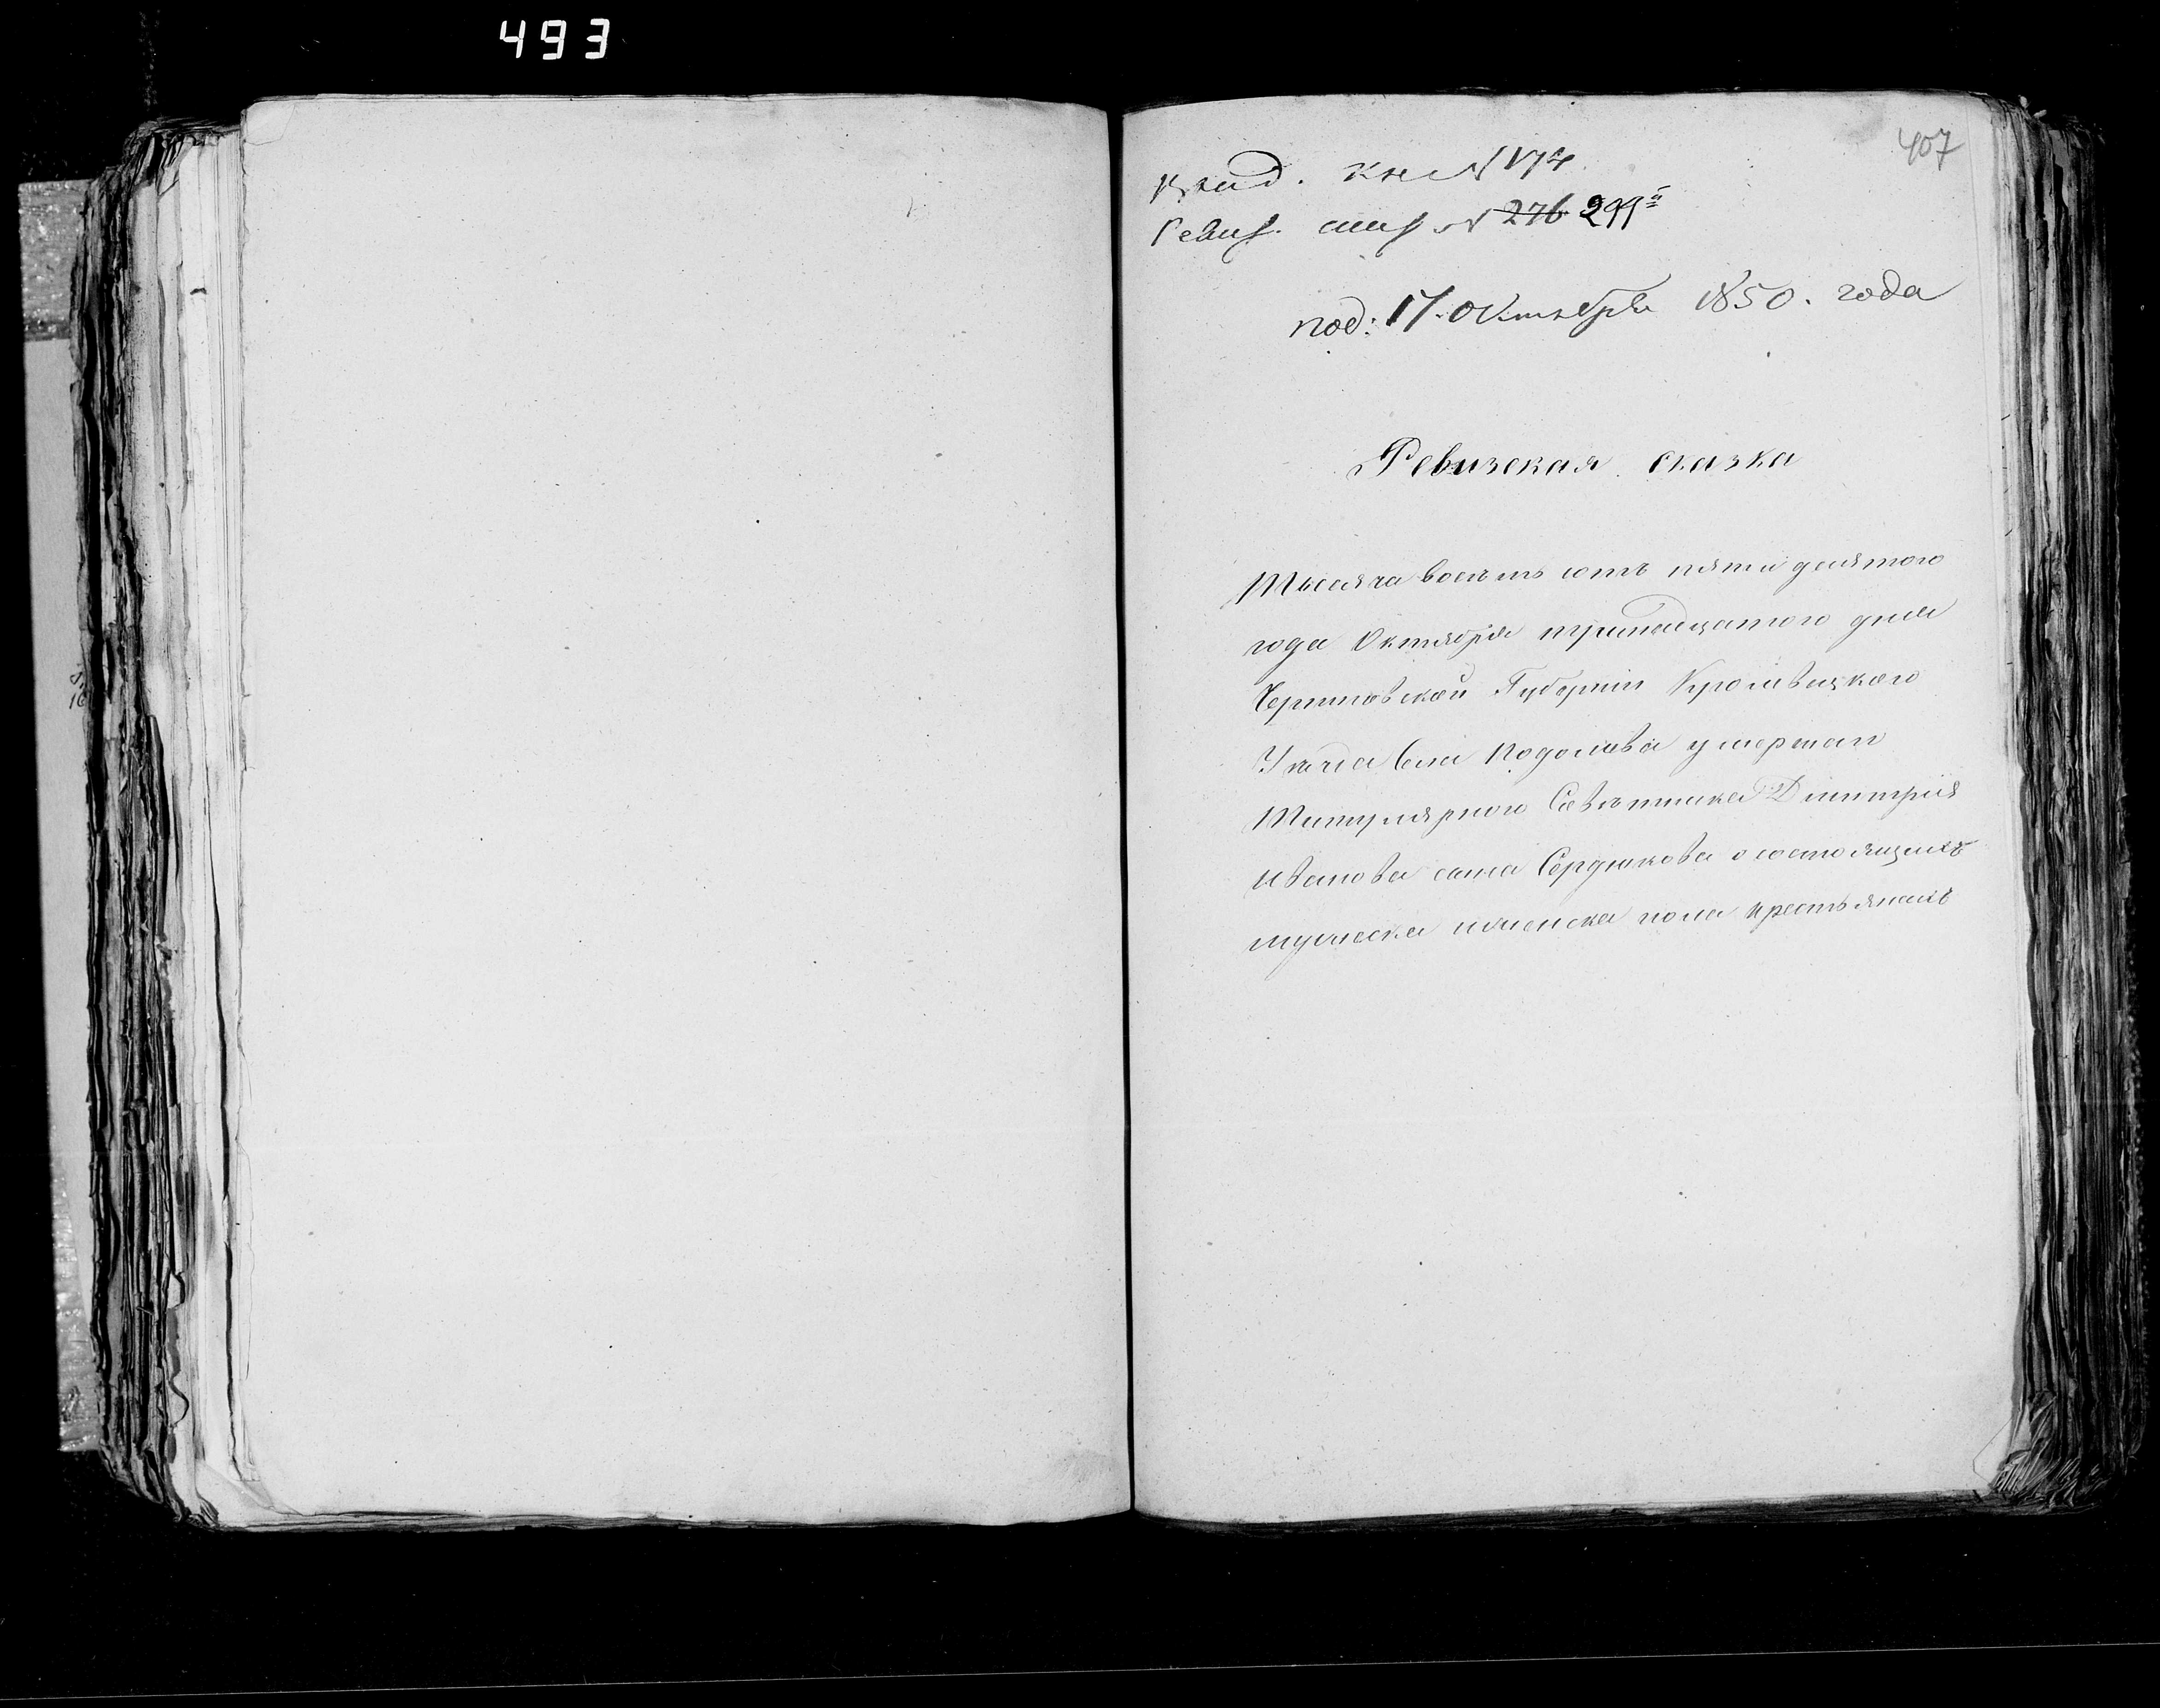 493
407
кн № 174
Ревиз. № 276 299й
под: 17. Октября 1850. года
Ревизская сказка
Тысяча восемь сотъ пятидесятого
года Октября тринадцатого дня
Черниговской Губернiи Кролевецкого
Уезда Села Подолова умершаго
Титулярного Советника Дмитрiя
Иванова сына Сердюкова о состоящихъ
мужеска и женска пола крестьянахъ